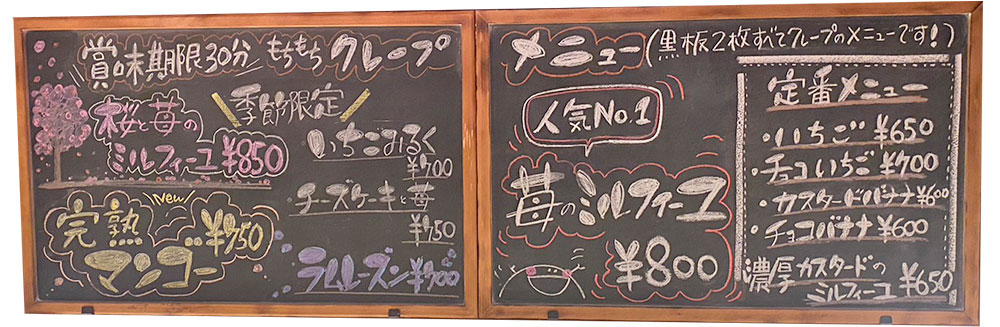 賞味期限30分 もちもち クレープ
季節限定
桜と苺の
ミルフィーユ ¥850
いちごみるく
¥700
チーズケーキと苺
¥750
New
完熟
マンゴー ¥750
ラムレーズン ¥700
メニュー (黒板2枚すべてクレープのメニューです!)
人気No.1
苺のミルフィーユ
¥800
定番メニュー
・いちご ¥650
・チョコいちご ¥700
・カスタードバナナ ¥600
・チョコバナナ ¥600
濃厚カスタードの
ミルフィーユ ¥650